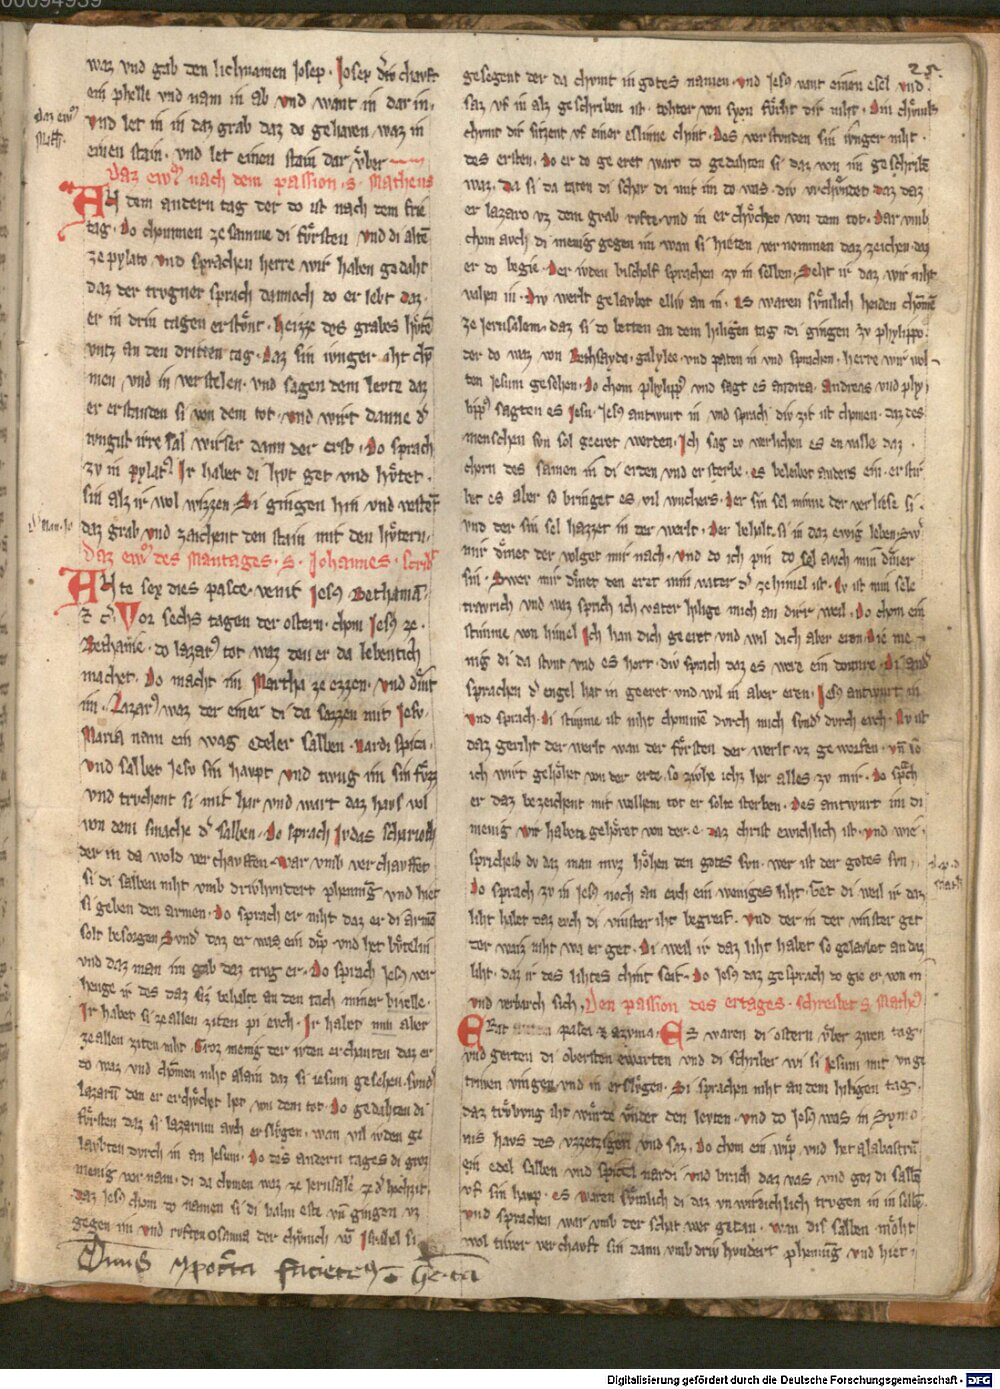 00094939
25.
waz vnd gab den lichnamen Josep. Josep der chauft
ein phelle vnd nam in ab vnd want in dar in.
vnd let in in daz grab daz do gehaven waz in
einen stain. vnd let einen stain dar vber
Daz ew͛ nach dem passion. s. Matheus
An dem andern tag der do ist nach dem frei
tag. Do chommen ze samme di fursten vnd di alte
ze pylato vnd sprachen herre wir haben gedaht
daz der trugner sprach dannoch do er lebt daz
er in drin tagen erstont. heizze des grabes huten
vntz an den dritten tag. Daz sin iunger iht chom
men, vnd in verstelen. vnd sagen dem leutz daz
er erstanden si von dem tot. vnd wirt danne d͛
iungist irresal wirser dann der erst. Do sprach
zv in pylat͛ Ir habet di hvt get vnd hvtet.
sin alz ir wol wizzen Si giengen hin vnd vesten
daz grab vnd zaichent den stain mit den hvtern.
Daz ew͛ des Mantages. s. Johannes. scrib
Ante sex dies pasce. venit Jesus Bethania.
Vor sechs tagen der ostern. chom Jesus ze.
Bethanie. do lazarus tot waz den er da lebentich
machet. Do macht im Martha ze ezzen. vnd dint
im. Lazarus waz der einer di da sazzen mit Jesu.
Maria nam ein wag edeler salben. Nardi spici.
vnd salbet Jesu sin haupt vnd twug im sin fuzz
vnd truchent si mit har vnd wart daz haus vol
von dem smache d͛ salben. Do sprach Judas scharioth
der in da wold verchauffen. War vmb verchauffet
si di salben niht vmb driuhundert phenning vnd hiet
si geben den armen. Do sprach er niht daz er di armen
solt besorgen Sund͛ daz er was ein dip vnd het butelin
vnd daz man im gab daz trug er. Do sprach Jesus ver
henge ir des daz siz behalte an den tach miner bivelle.
Ir habet si ze allen ziten pi evch. Ir habet min aber
ze allen ziten niht. Groz menig der iuden erchanten daz er
do waz vnd chomen niht alain daz si iesum gesehen. sund͛
lazarum den er erchuchet het von dem tot. Do gedahten di
fursten daz si lazarum auch erslugen. wan vil iuden ge
laubten durch in an Jesum. Do des andern tages di groz
menig vernam. di da chomen waz ze Jerusalem ze d͛ hochzit.
daz Jesus chom do namen si di balm este vnd gingen vz
gegen im vnd ruften osanna der chunich von Israhel si
gesegent der da chvmt in gotes namen. vnd Jesus vant einen esel vnd
saz vf in alz geschriben ist. tohter von syon furht dir niht. Din chunik
chvmt dir sitzent vf einer eslinne chint. Des verstunden sin iunger niht.
des ersten. Do er do geeret wart do gedahten si daz von im geschrib
waz. Da si da taten di schar di mit im do was. div vrchundet daz daz
er lazaro vz dem grab rufte vnd in erchuchet von dem tot. Dar vmb
chom auch di menig gegen im wan si hieten vernommen daz zeichen daz
er do begie. Der iuden bischolf sprachen zv in selben. Seht ir daz wir niht
vahen in. Div werlt gelaubet elliv an in. Es waren sumlich heiden chomen
ze Jerusalem. daz si do betten an dem hiligen tag di gingen zv phylippo.
der do waz von Bethsayda. galylee. vnd paten in vnd sprachen. herre wir wol
ten Jesum gesehen. Do chom phylippus vnd sagt es andrea. Andreas vnd phy
lippus sagten es Jesu. Jesus antwurt in vnd sprach div zit ist chomen. daz des
menschen sun sol geeret werden. Ich sag ev werlichen es en valle daz
chorn des samen in di erden vnd ersterbe. es beleibet anders ein. erstir
bet es aber so bringet es vil wuchers. Der sin sel minne der verliese si.
vnd der sin sel hazzet in der werlt. Der behalt si in daz ewig leben. swer
mir dinet der volget mir nach. vnd do ich pin do sol auch min diner
sin. Swer mir dinet den eret min vater d͛ ze himel ist. Nv ist min sele
truvrich vnd waz sprich ich vater hilige mich an dirr weil. Do chom ein
stimme von himel Ich han dich geeret vnd wil dich aber eren. Die me
nig di da stunt vnd es hort. div sprach daz es were ein donnre. Di and͛
sprachen d͛ engel hat in geeret vnd wil in aber eren. Jesus antwurt in
vnd sprach. Di stimme ist niht chommen durch mich sund͛ durch evch. Nv ist
daz geriht der werlt wan der fursten der werlt vz geworfen. vnd so
ich wirt gehohet von der erde. so zivhe ichz her alles zv mir. Do sprach
er daz bezeichent mit wellhem tot er solte sterben. Des antwurt im di
menig wir haben gehoret von der e. daz christ ewichlich ist. vnd wie
sprichest dv daz man mvz hohen den gotes svn. wer ist der gotes svn.
Do sprach zv in Jesus noch an evch ein weniges liht. Get di weil ir daz
liht habet daz evch di vinster iht begreif. vnd der in der vinster get
der waiz niht wa er get. Di weil ir daz liht habet so gelaubet an daz
liht. daz ir des lihtes chint seit. Do Jesus daz gesprach do gie er von in
vnd verbarch sich. Den passion des ertages. schreibet s. Matheus
Erat autem pasca z azyma. Es waren di ostern vber zwen tag.
vnd gerten di obersten ewarten vnd di schriber wi si Jesum mit vnge
triwen vingen. vnd in erslugen. Si sprachen niht an dem hiligen tag.
daz trubung iht wurde vnder den leuten. vnd do Jesus was in Symo
nis haus des vzzetzigen vnd saz. Do chom ein wip vnd het alabastrum
ein edel salben vnd spica nardi vnd brich daz vas vnd goz di salb
vf sin haup. es waren sumlich di daz vnwirdichlich trugen in in selb.
vnd sprachen war vmb der schat wer getan. wan dis salben moht
wol tiurer verchauft sin dann vmb driu hundert phenning vnd hiet.
Digitalisierung gefördert durch die Deutsche Forschungsgemeinschaft - DFG